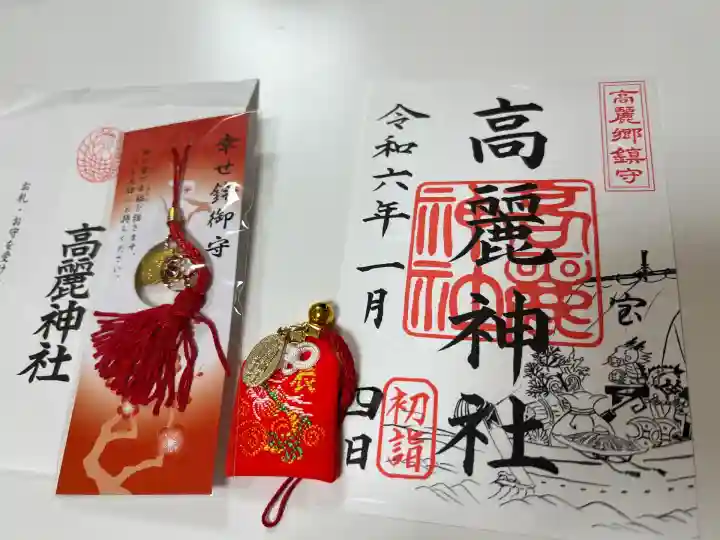 高麗郷鎮守
高麗神社
令和六年一月四日
初詣
宝
幸せ鈴御守
お札・お守を受け
高麗神社